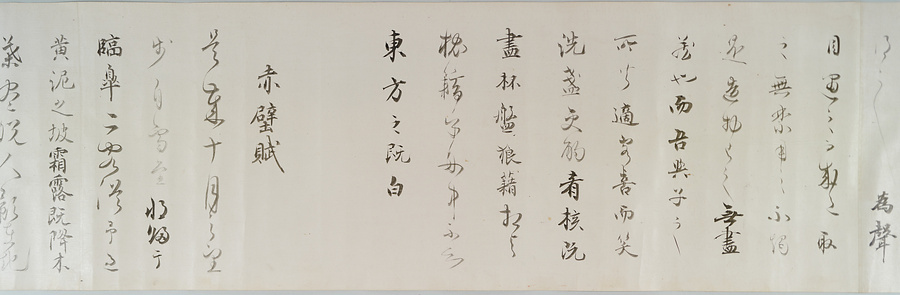 得之而為聲
目遇之而成色取
之無禁用之不竭
是造物者之无盡
藏也而吾與子之
所共適客喜而笑
洗盞更酌肴核既
盡杯盤狼籍相與
枕籍乎舟中不知
東方之既白
赤壁賦
是歲十月之望
步自雪堂將歸于
臨皐二客從予過
黃泥之坡霜露既降木
葉盡脫人影在地